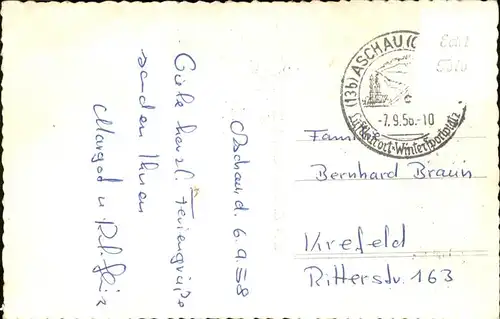 Aschau d. 6.9.58
Gute herzl. Feriengrüße
senden Ihnen
Margot u.
(13b) ASCHAU (
-7.9.58.-10
Luftkurort-Wintersportplatz
Echt
Foto
Fam
Bernhard Braun
Krefeld
Ritterstr. 163